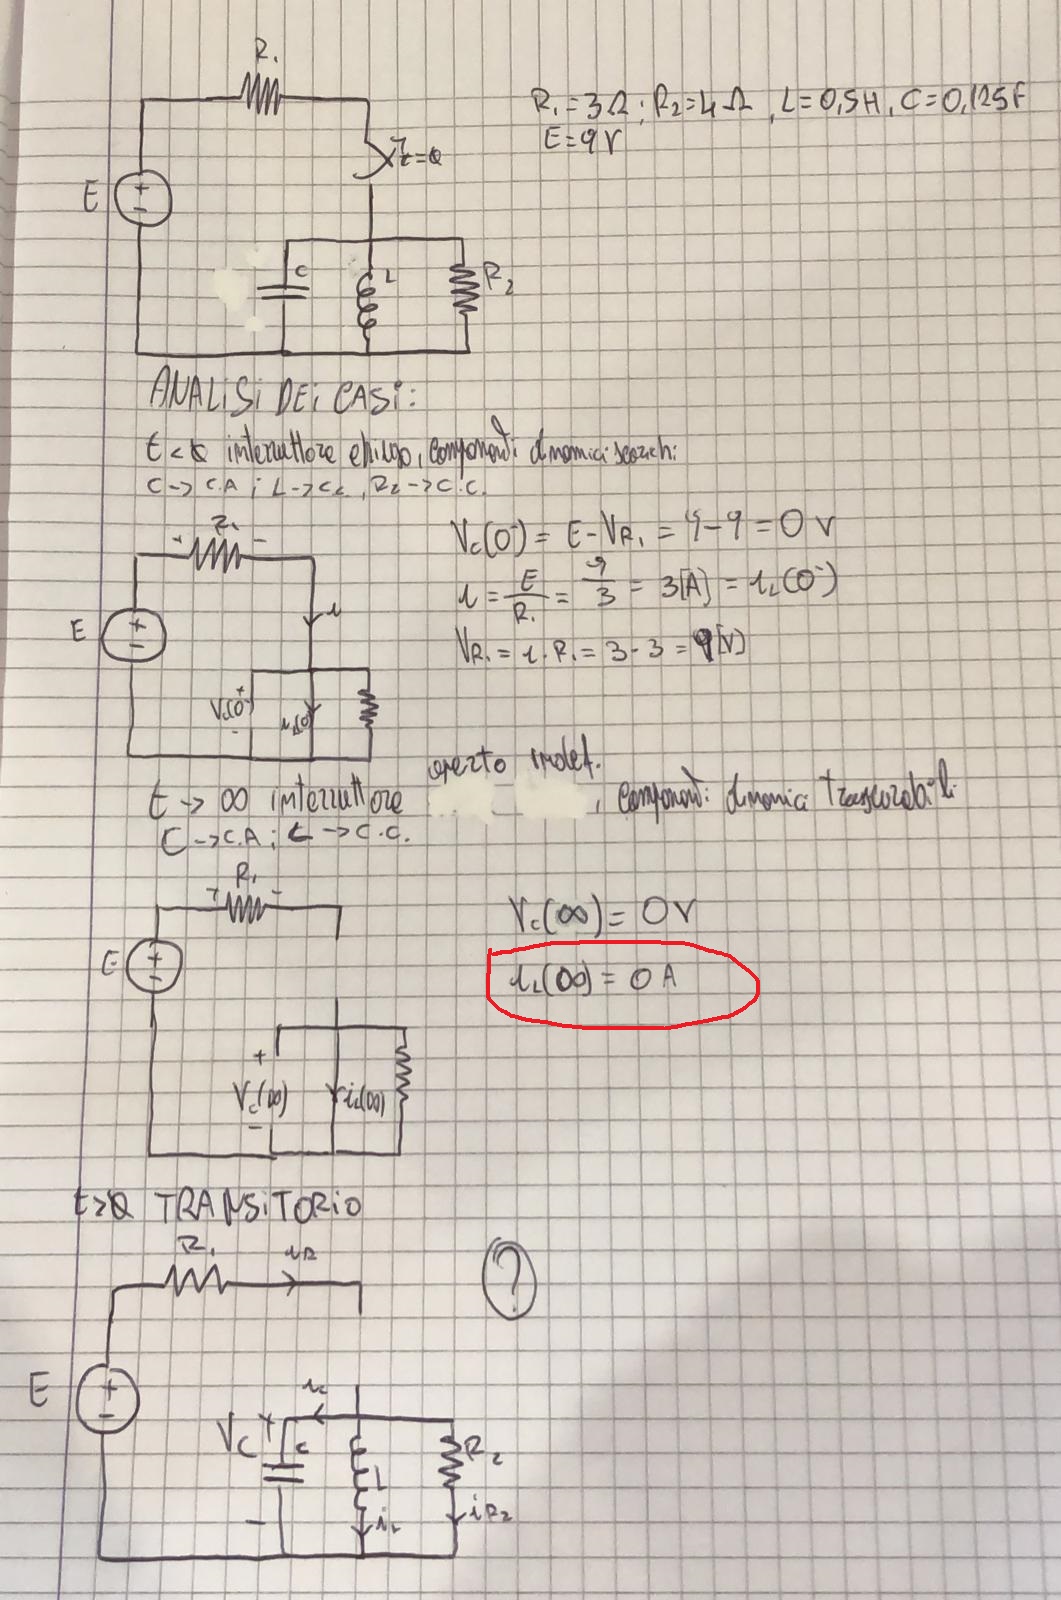 R₁
R₁=3Ω; R₂=4Ω, L=0,5H, C=0,125F
E=9V
t=0
E
+
-
C
L
R₂
ANALISI DEI CASI:
t<0 interruttore chiuso, componenti dinamici scarichi:
C->C.A; L->C.C, R₂->C.C.
+ R₁ -
Vc(0⁻) = E-VR₁ = 9-9 = 0 V
i = E/R₁ = 9/3 = 3[A] = iL(0⁻)
i
E
+
-
VR₁ = i·R₁ = 3·3 = 9[V]
Vc(0⁻)
+
-
iL(0⁻)
aperto indef.
t->∞ interruttore , componenti dinamici trascurabili
C->C.A; L->C.C.
+ R₁ -
Vc(∞) = 0V
E
+
-
iL(∞) = 0 A
+
Vc(∞)
-
iL(∞)
t>0 TRANSITORIO
R₁
iR
?
E
+
-
ic
Vc
+
C
-
L
iL
R₂
iR₂